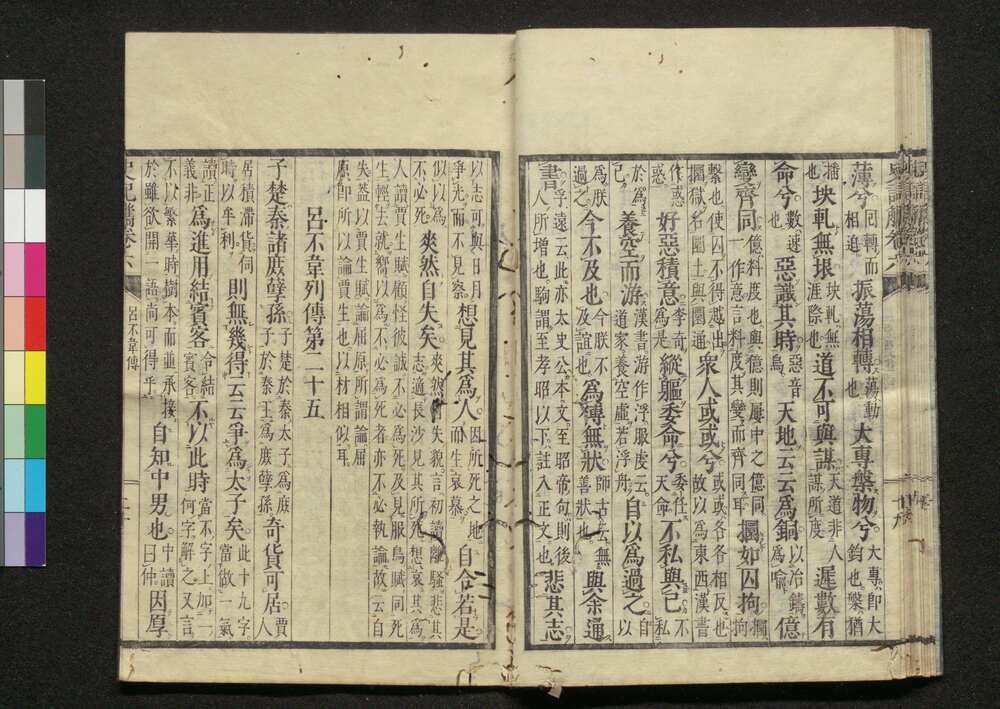 薄兮回轉而相迫振蕩相轉蕩動也大專槃物兮大專即大鈞也槃猶
播也坱軋無垠坱軋無涯際也道不可與謀天道非人謀所度遲數有
命兮數速也惡識其時惡音烏天地云云爲銅以冶鑄爲喻億
變齊同億料度也與億則屢中之億同一作意言料度其變而齊同耳攌如囚拘攌拘
繫也使囚不得越出攌獄名圂土與圂通衆人或或兮或或各各相反也故以爲東西漢書
作惑惑好惡積意李奇爲是縱軀委命兮委任天命不私與己不私
於己養空而游漢書游作浮服虔云道家養空虛若浮舟自以爲過之自以
爲朕過之今不及也今朕不及誼也爲傅無狀師古云無善狀也與余通
書孚遠云此亦太史公本文至昭帝句則後人所增也駒謂至孝昭以下註入正文也悲其志
以志可與日月爭光而不見察想見其爲人因所死之地而生哀慕自令若是
似以爲不必死爽然自失矣爽然失貌言初讀離騷悲其志適長沙見其所死想哀其爲
人讀賈生賦顧怪彼誠不必爲死及見服鳥賦同死生輕去就嚮以爲不必爲死者亦不必執論故云自
失蓋以賈生賦論屈原所謂論屈原即所以論賈生也以材相似耳
呂不韋列傳第二十五
子楚秦諸庶孽孫子楚於秦太子爲庶子於秦王爲庶孽孫奇貨可居賈人
居積滯貨伺時以牟利則無幾得云云爭爲太子矣此十九字當做一氣
讀正義非爲進用結賓客令結賓客不以此時當不字上加一何字解之又言
不以繁華時樹本而並承接於雖欲開一語尚可得乎自知中男也中讀曰仲因厚
呂不韋傳